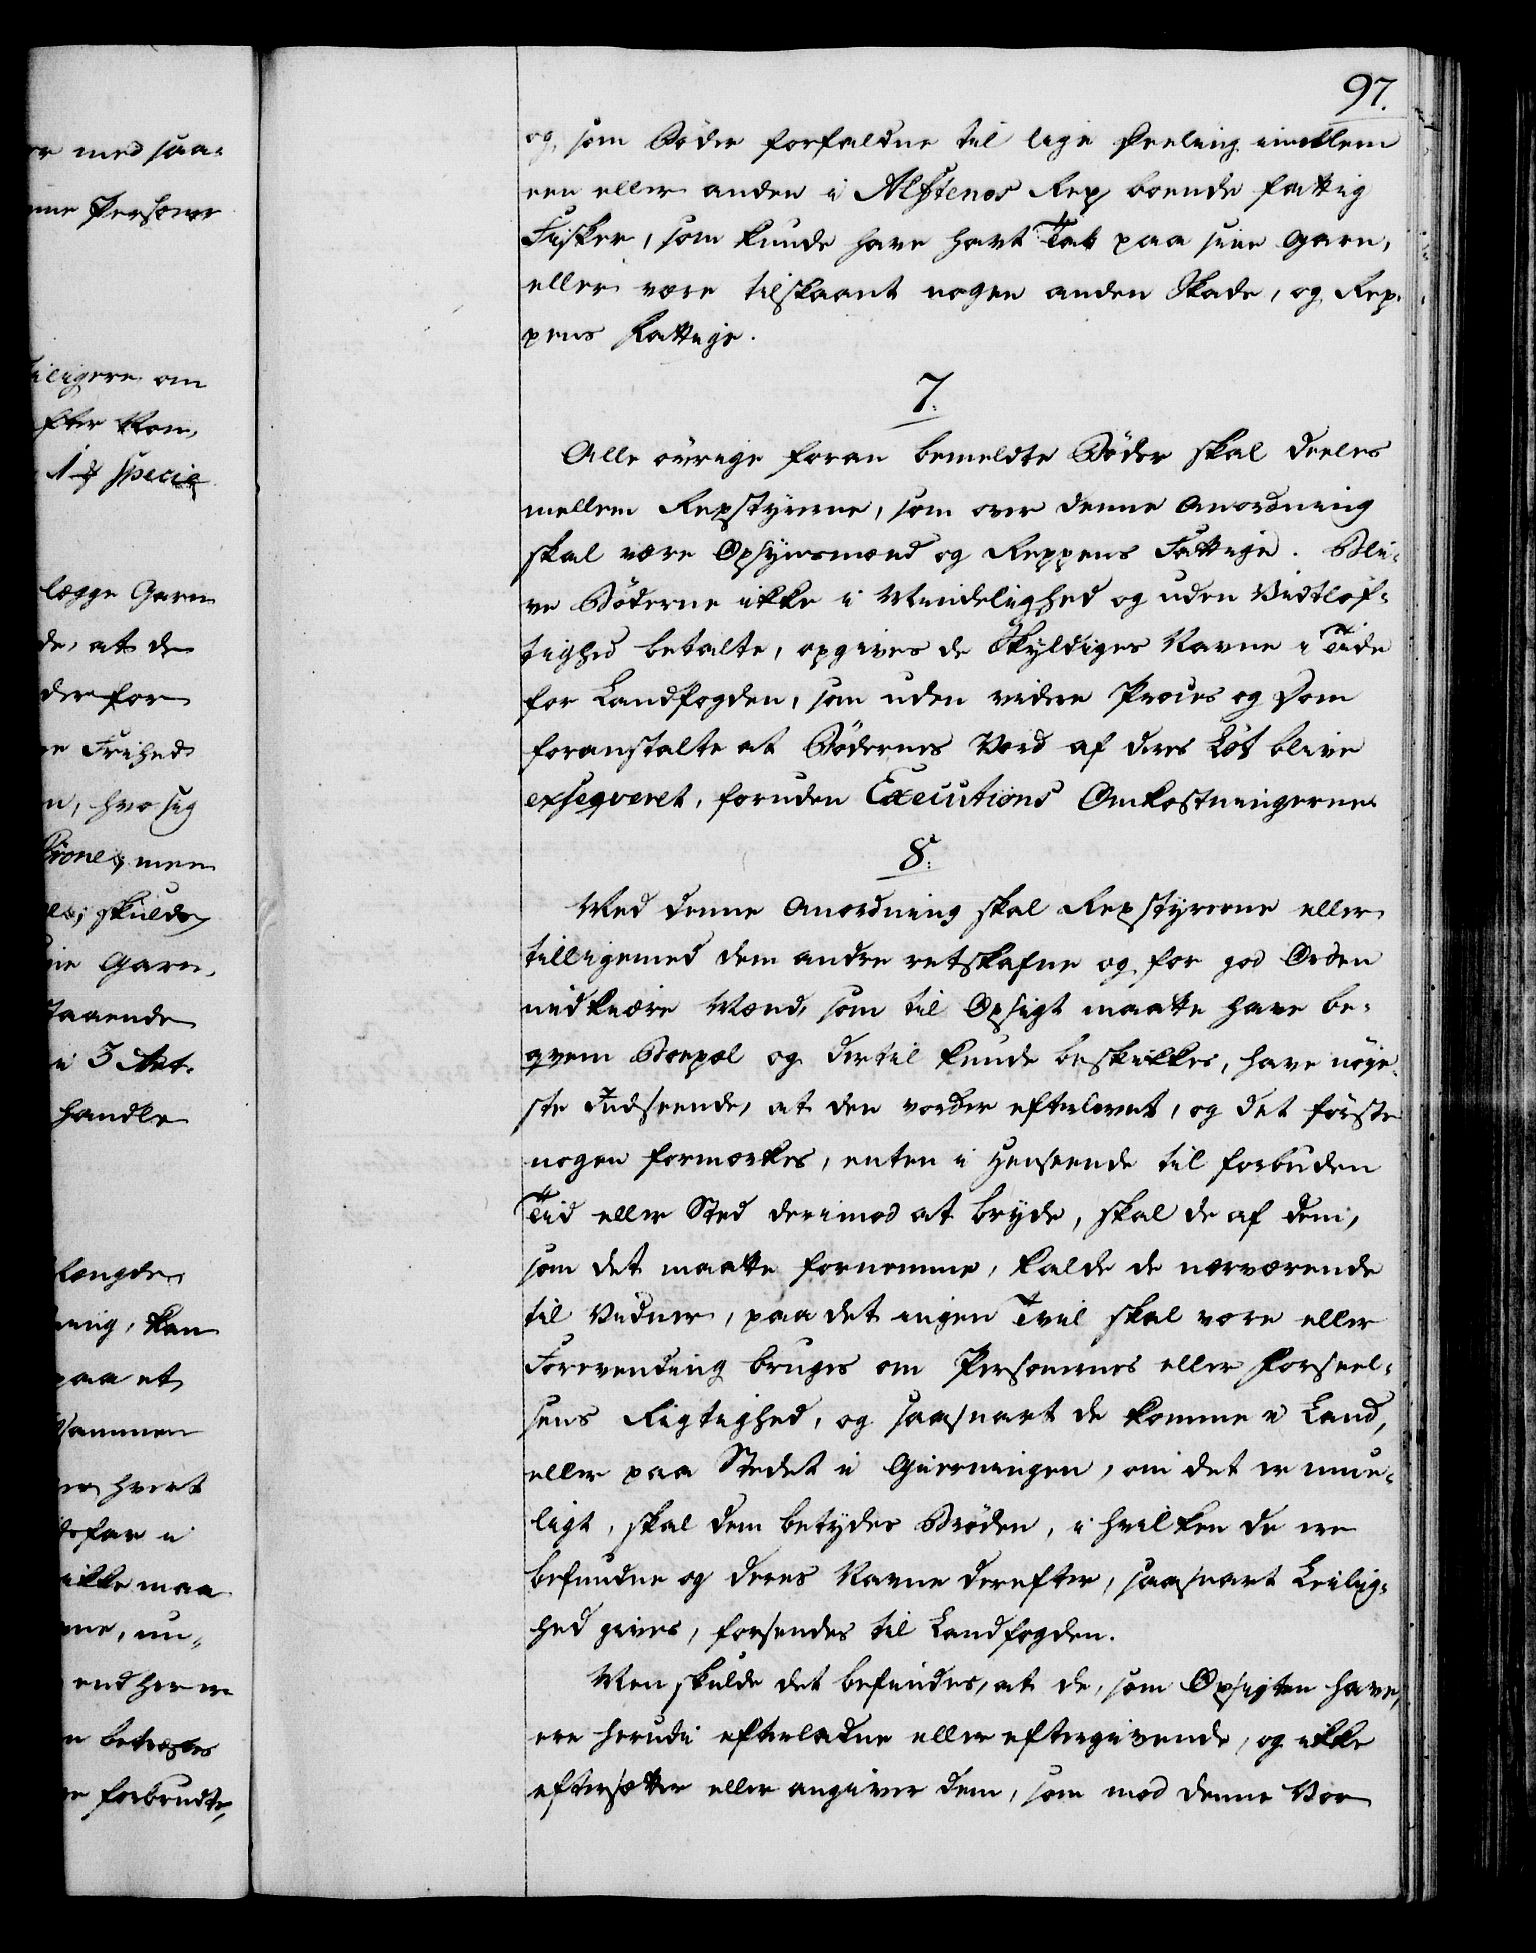 97.
og, som Bøder forfaldne til lige Deeling imellem
een eller anden i Alstenøs Rep boende fattig
Fisker, som kunde have havt Tab paa sine Garn,
eller være tilskaant nogen anden Skade, og Rep-
pens Fattige.
7.
Alle øvrige foran bemeldte Bøder skal deeles
mellem Repstyrerne, som over denne Anordning
skal være Opsynsmænd og Reppens Fattige. Bli-
ve Bøderne ikke i Mindelighed og uden Vidtløf-
tighed betalte, opgives de Skyldiges Navne i Tide
for Landfogden, som uden videre Proces og Dom
foranstalte at Bødernes Værd af deres Løt blive
exseqveret, foruden Executions Omkostningerne
8.
Med denne Anordning skal Repstyrerne eller
tilligemed dem andre retskafne og for god Orden
nidkiære Mænd, som til Opsigt maatte have be-
qvem Boepæl og dertil kunde beskikkes, have nøye-
ste Indseende, at den vorder efterlevet, og det første
nogen formærkes, enten i Henseende til forbuden
Tid eller Sted derimod at bryde, skal de af dem,
som det maatte fornemme, kalde de nærværende
til Vidner, paa det ingen Tvil skal være eller
Forevending bruges om Personernes eller Forseel-
sens Rigtighed, og saasnart de komme i Land,
eller paa Stedet i Gierningen, om det er mue-
ligt, skal dem betydes Brøden, i hvilken de ere
befundne og deres Navne derefter, saasnart Leilig-
hed gives, forsendes til Landfogden.
Men skulde det befindes, at de, som Opsigten have,
ere herudi efterladne eller eftergivende, og ikke
eftersætter eller angiver dem, som mod denne Vor